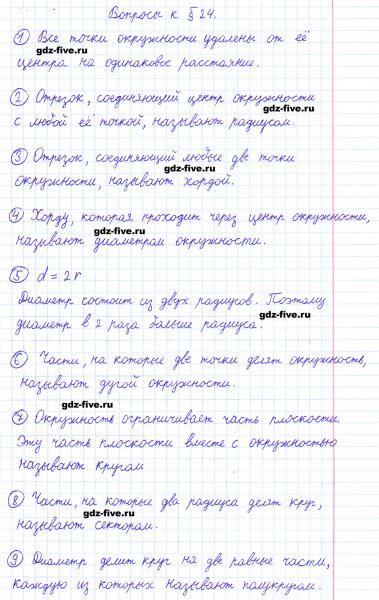 Вопросы к § 24.
① Все точки окружности удалены от её
gdz-five.ru
центра на одинаковое расстояние.
② Отрезок, соединяющий центр окружности
gdz-five.ru
с любой её точкой, называют радиусом.
③ Отрезок, соединяющий любые две точки
gdz-five.ru
окружности, называют хордой.
④ Хорду, которая проходит через центр окружности,
gdz-five.ru
называют диаметром окружности.
⑤ d = 2r
gdz-five.ru
Диаметр состоит из двух радиусов. Поэтому
диаметр в 2 раза больше радиуса.
gdz-five.ru
⑥ Части, на которые две точки делят окружность,
называют дугой окружности.
gdz-five.ru
⑦ Окружность ограничивает часть плоскости.
Эту часть плоскости вместе с окружностью
называют кругом
gdz-five.ru
⑧ Части, на которые два радиуса делят круг,
называют сектором.
gdz-five.ru
⑨ Диаметр делит круг на две равные части,
каждую из которых называют полукругом.
gdz-five.ru